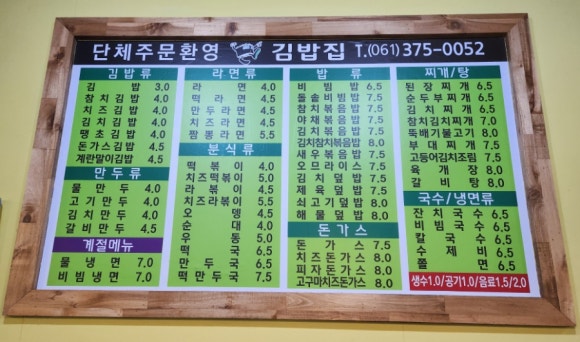 단체주문환영 김밥집 T.(061)375-0052
김밥류
김밥 3.0
참치김밥 4.0
치즈김밥 4.0
김치김밥 4.0
땡초김밥 4.0
돈가스김밥 4.5
계란말이김밥 4.5
만두류
물만두 4.0
고기만두 4.0
김치만두 4.0
갈비만두 4.5
계절메뉴
물냉면 7.0
비빔냉면 7.0
라면류
라면 4.0
떡라면 4.5
만두라면 4.5
치즈라면 4.5
짬뽕라면 5.5
분식류
떡볶이 4.0
치즈떡볶이 5.0
라볶이 4.5
치즈라볶이 5.5
오뎅 4.5
순대 4.0
우동 5.0
떡국 6.5
만두국 6.5
떡만두국 7.5
밥류
비빔밥 6.5
돌솥비빔밥 7.5
야채볶음밥 7.5
김치볶음밥 7.5
김치참치볶음밥 8.0
새우볶음밥 7.5
오므라이스 7.5
김치덮밥 7.5
제육덮밥 7.5
쇠고기덮밥 8.0
해물덮밥 8.0
돈가스
돈가스 7.5
치즈돈가스 8.0
피자돈가스 8.0
고구마치즈돈가스 8.0
찌개/탕
된장찌개 6.5
순두부찌개 6.5
김치찌개 6.5
참치김치찌개 7.5
뚝배기불고기 8.0
부대찌개 7.5
고등어김치조림 7.5
육개장 8.0
갈비탕 8.0
국수/냉면류
잔치국수 6.5
비빔국수 6.5
칼국수 6.5
수제비 6.5
쫄면 6.5
생수1.0/공기1.0/음료1.5/2.0